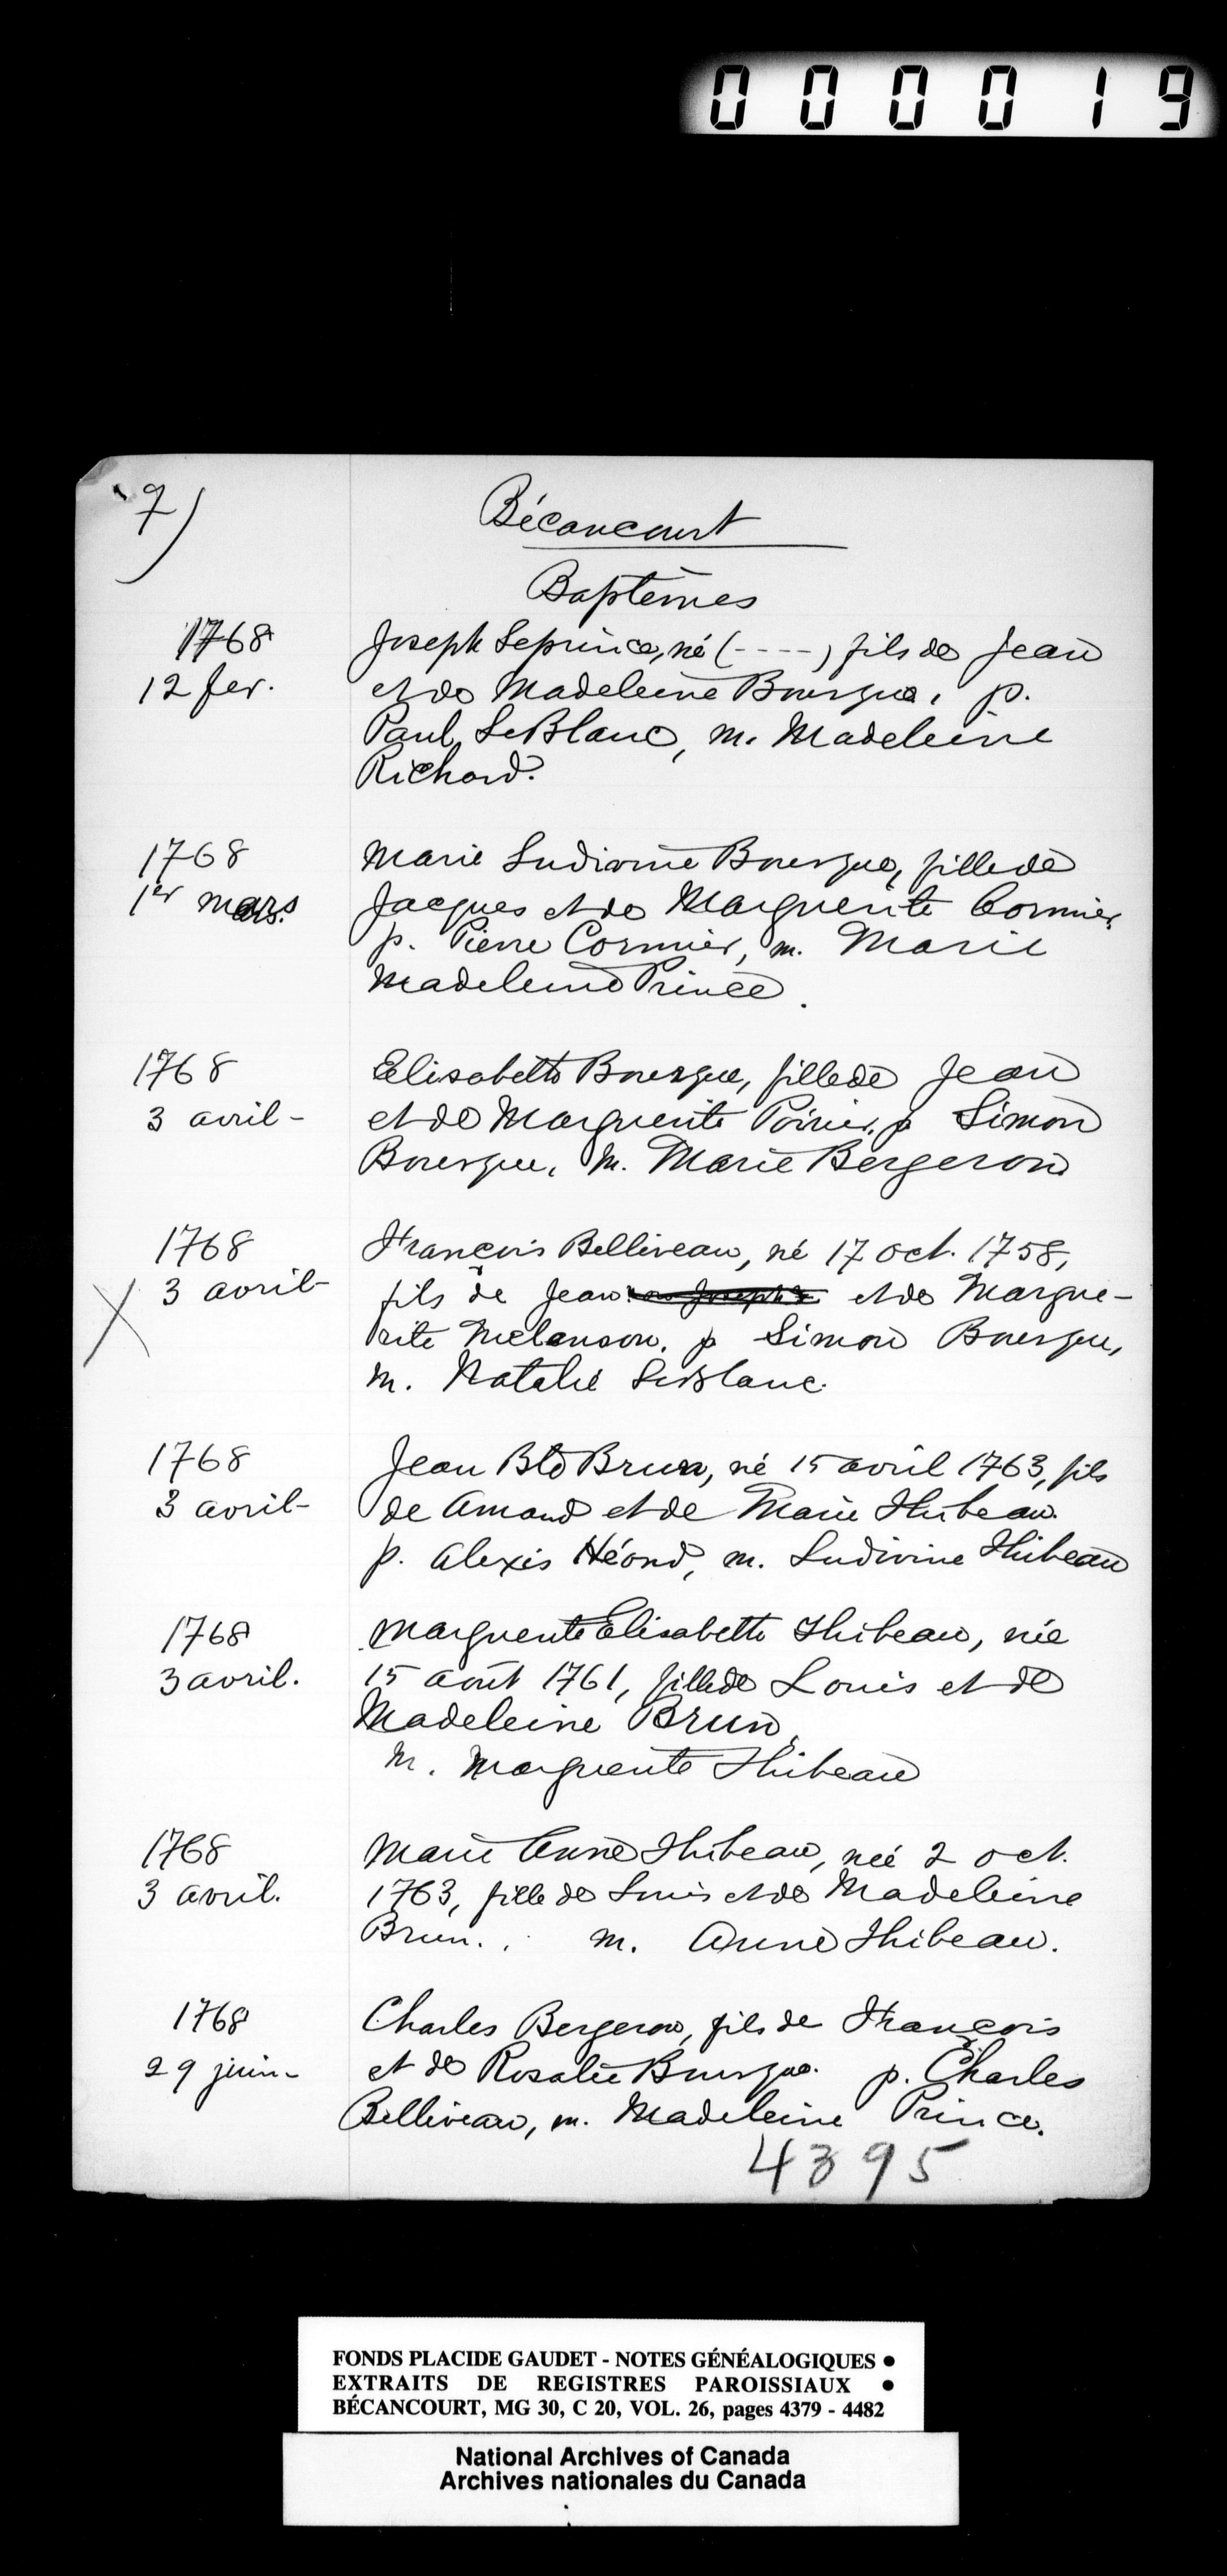 000019
7)
Bécancourt
Baptêmes
1768
Joseph Leprince, né (----) fils de Jean
12 fev.
et de Madeleine Bourque, p.
Paul LeBlanc, m. Madeleine
Richard.
1768
Marie Ludivine Bourque, fille de
1er mars.
Jacques et de Marguerite Cormier,
p. Pierre Cormier, m. Marie
Madeleine Prince.
1768
Elisabeth Bourque, fille de Jean
3 avril-
et de Marguerite Poirier. p Simon
Bourque, m. Marie Bergeron
1768
François Belliveau, né 17 oct. 1758,
X 3 avril-
fils de Jean ou Joseph et de Margue-
rite Melanson. p Simon Bourque,
m. Natalie LeBlanc.
1768
Jean Bte Brun, né 15 avril 1763, fils
3 avril-
de Amand et de Marie Thibeau.
p. Alexis Héond, m. Ludivine Thibeau
1768
Marguerite Elisabeth Thibeau, née
3 avril.
15 août 1761, fille de Louis et de
Madeleine Brun,
m. Marguerite Thibeau
1768
Marie Anne Thibeau, née 2 oct.
3 avril.
1763, fille de Louis et de Madeleine
Brun. . m. Anne Thibeau.
1768
Charles Bergeron, fils de François
29 juin-
et de Rosalie Bourque. p. Charles
Belliveau, m. Madeleine Prince.
4395
FONDS PLACIDE GAUDET - NOTES GÉNÉALOGIQUES •
EXTRAITS DE REGISTRES PAROISSIAUX •
BÉCANCOURT, MG 30, C 20, VOL. 26, pages 4379 - 4482
National Archives of Canada
Archives nationales du Canada